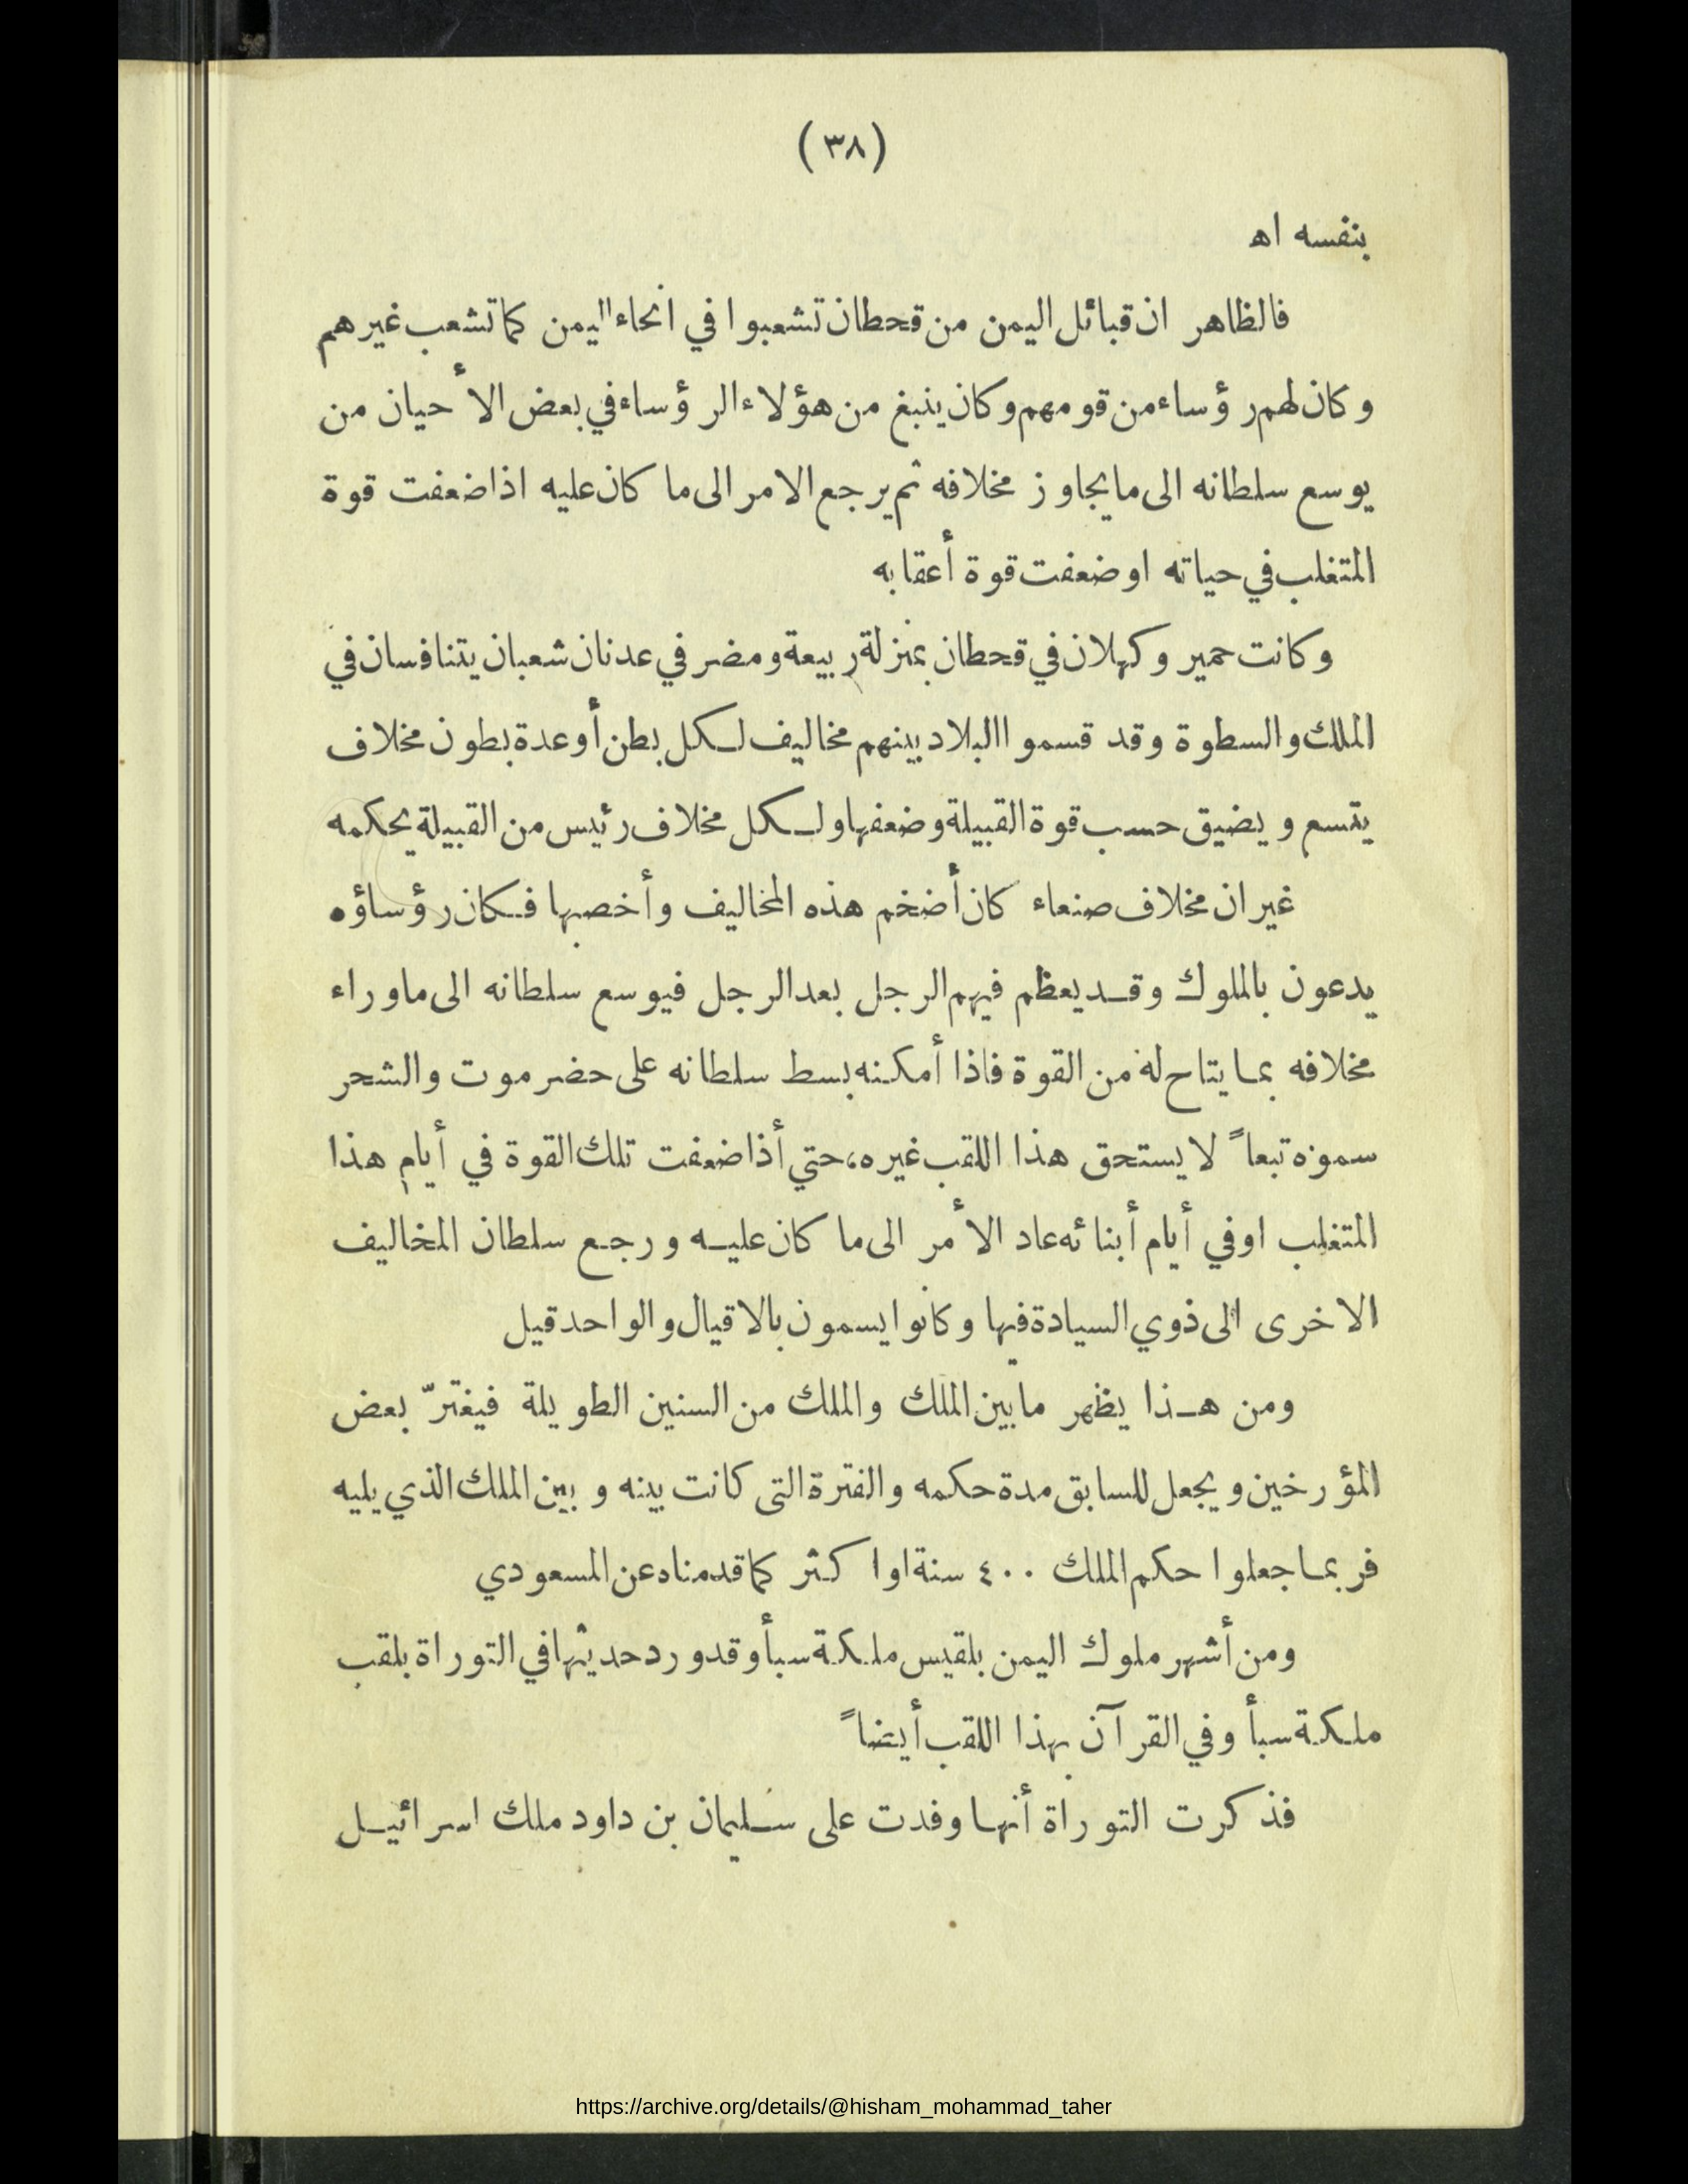 (٣٨)
بنفسه اه
فالظاهر ان قبائل اليمن من قحطان تشعبوا في أنحاء اليمن كما تشعب غيرهم
وكان لهم رؤساء من قومهم وكان ينبغ من هؤلاء الرؤساء في بعض الأحيان من
يوسع سلطانه الى ما يجاوز مخلافه ثم يرجع الامر الى ما كان عليه اذا ضعفت قوة
المتغلب في حياته او ضعفت قوة أعقابه
وكانت حمير وكهلان في قحطان بمنزلة ربيعة ومضر في عدنان شعبان يتنافسان في
الملك والسطوة وقد قسموا البلاد بينهم مخاليف لكل بطن أو عدة بطون مخلاف
يتسع ويضيق حسب قوة القبيلة وضعفها ولكل مخلاف رئيس من القبيلة يحكمه
غير ان مخلاف صنعاء كان أضخم هذه المخاليف وأخصبها فكان رؤساؤه
يدعون بالملوك وقد يعظم فيهم الرجل بعد الرجل فيوسع سلطانه الى ما وراء
مخلافه بما يتاح له من القوة فاذا أمكنه بسط سلطانه على حضرموت والشحر
سموه تبعاً لا يستحق هذا اللقب غيره، حتي أذا ضعفت تلك القوة في أيام هذا
المتغلب او في أيام أبنائه عاد الأمر الى ما كان عليه ورجع سلطان المخاليف
الاخرى الى ذوي السيادة فيها وكانوا يسمون بالاقيال والواحد قيل
ومن هذا يظهر ما بين الملك والملك من السنين الطويلة فيغترّ بعض
المؤرخين ويجعل للسابق مدة حكمه والفترة التى كانت بينه وبين الملك الذي يليه
فربما جعلوا حكم الملك ٤٠٠ سنة او اكثر كما قدمناه عن المسعودي
ومن أشهر ملوك اليمن بلقيس ملكة سبأ وقد ورد حديثها في التوراة بلقب
ملكة سبأ وفي القرآن بهذا اللقب أيضاً
فذكرت التوراة أنها وفدت على سليمان بن داود ملك اسرائيل
https://archive.org/details/@hisham_mohammad_taher